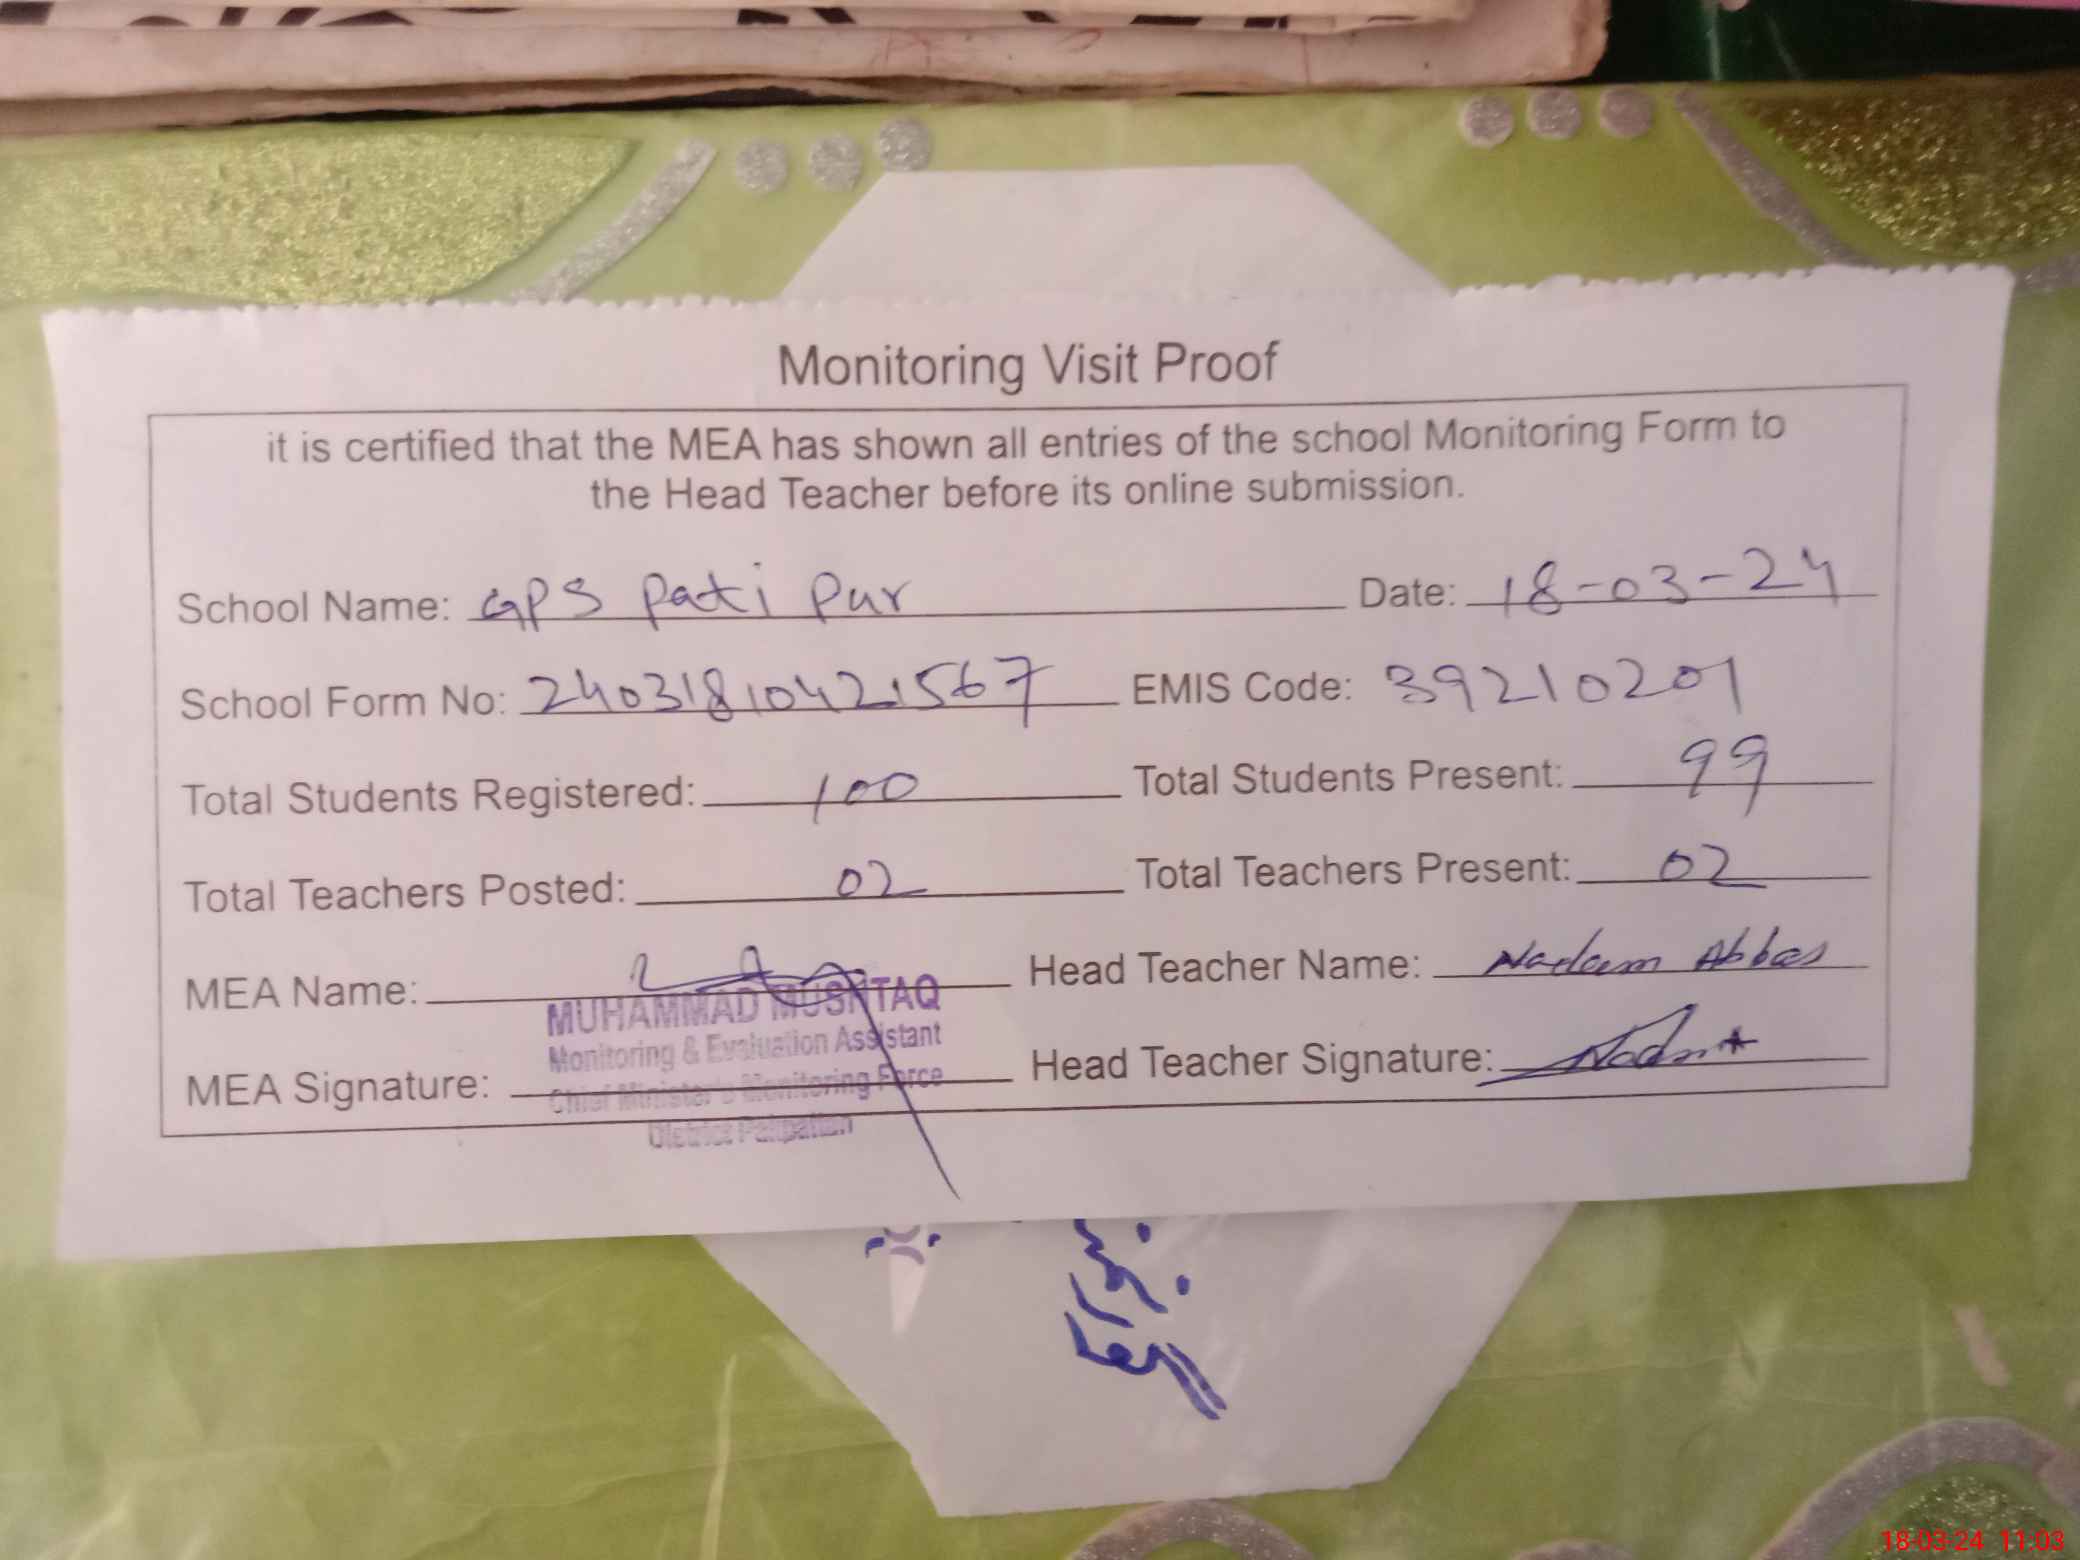 Monitoring Visit Proof
it is certified that the MEA has shown all entries of the school Monitoring Form to
the Head Teacher before its online submission.
School Name: GPS Pati Pur Date: 18-03-24
School Form No: 24031810421567 EMIS Code: 39210201
Total Students Registered: 100 Total Students Present: 99
Total Teachers Posted: 02 Total Teachers Present: 02
MEA Name: Head Teacher Name: Nadeem Abbas
MUHAMMAD MUSHTAQ
Monitoring & Evaluation Assistant
MEA Signature: Head Teacher Signature:
Chief Minister's Monitoring Force
District Pakpattan
18-03-24 11:03